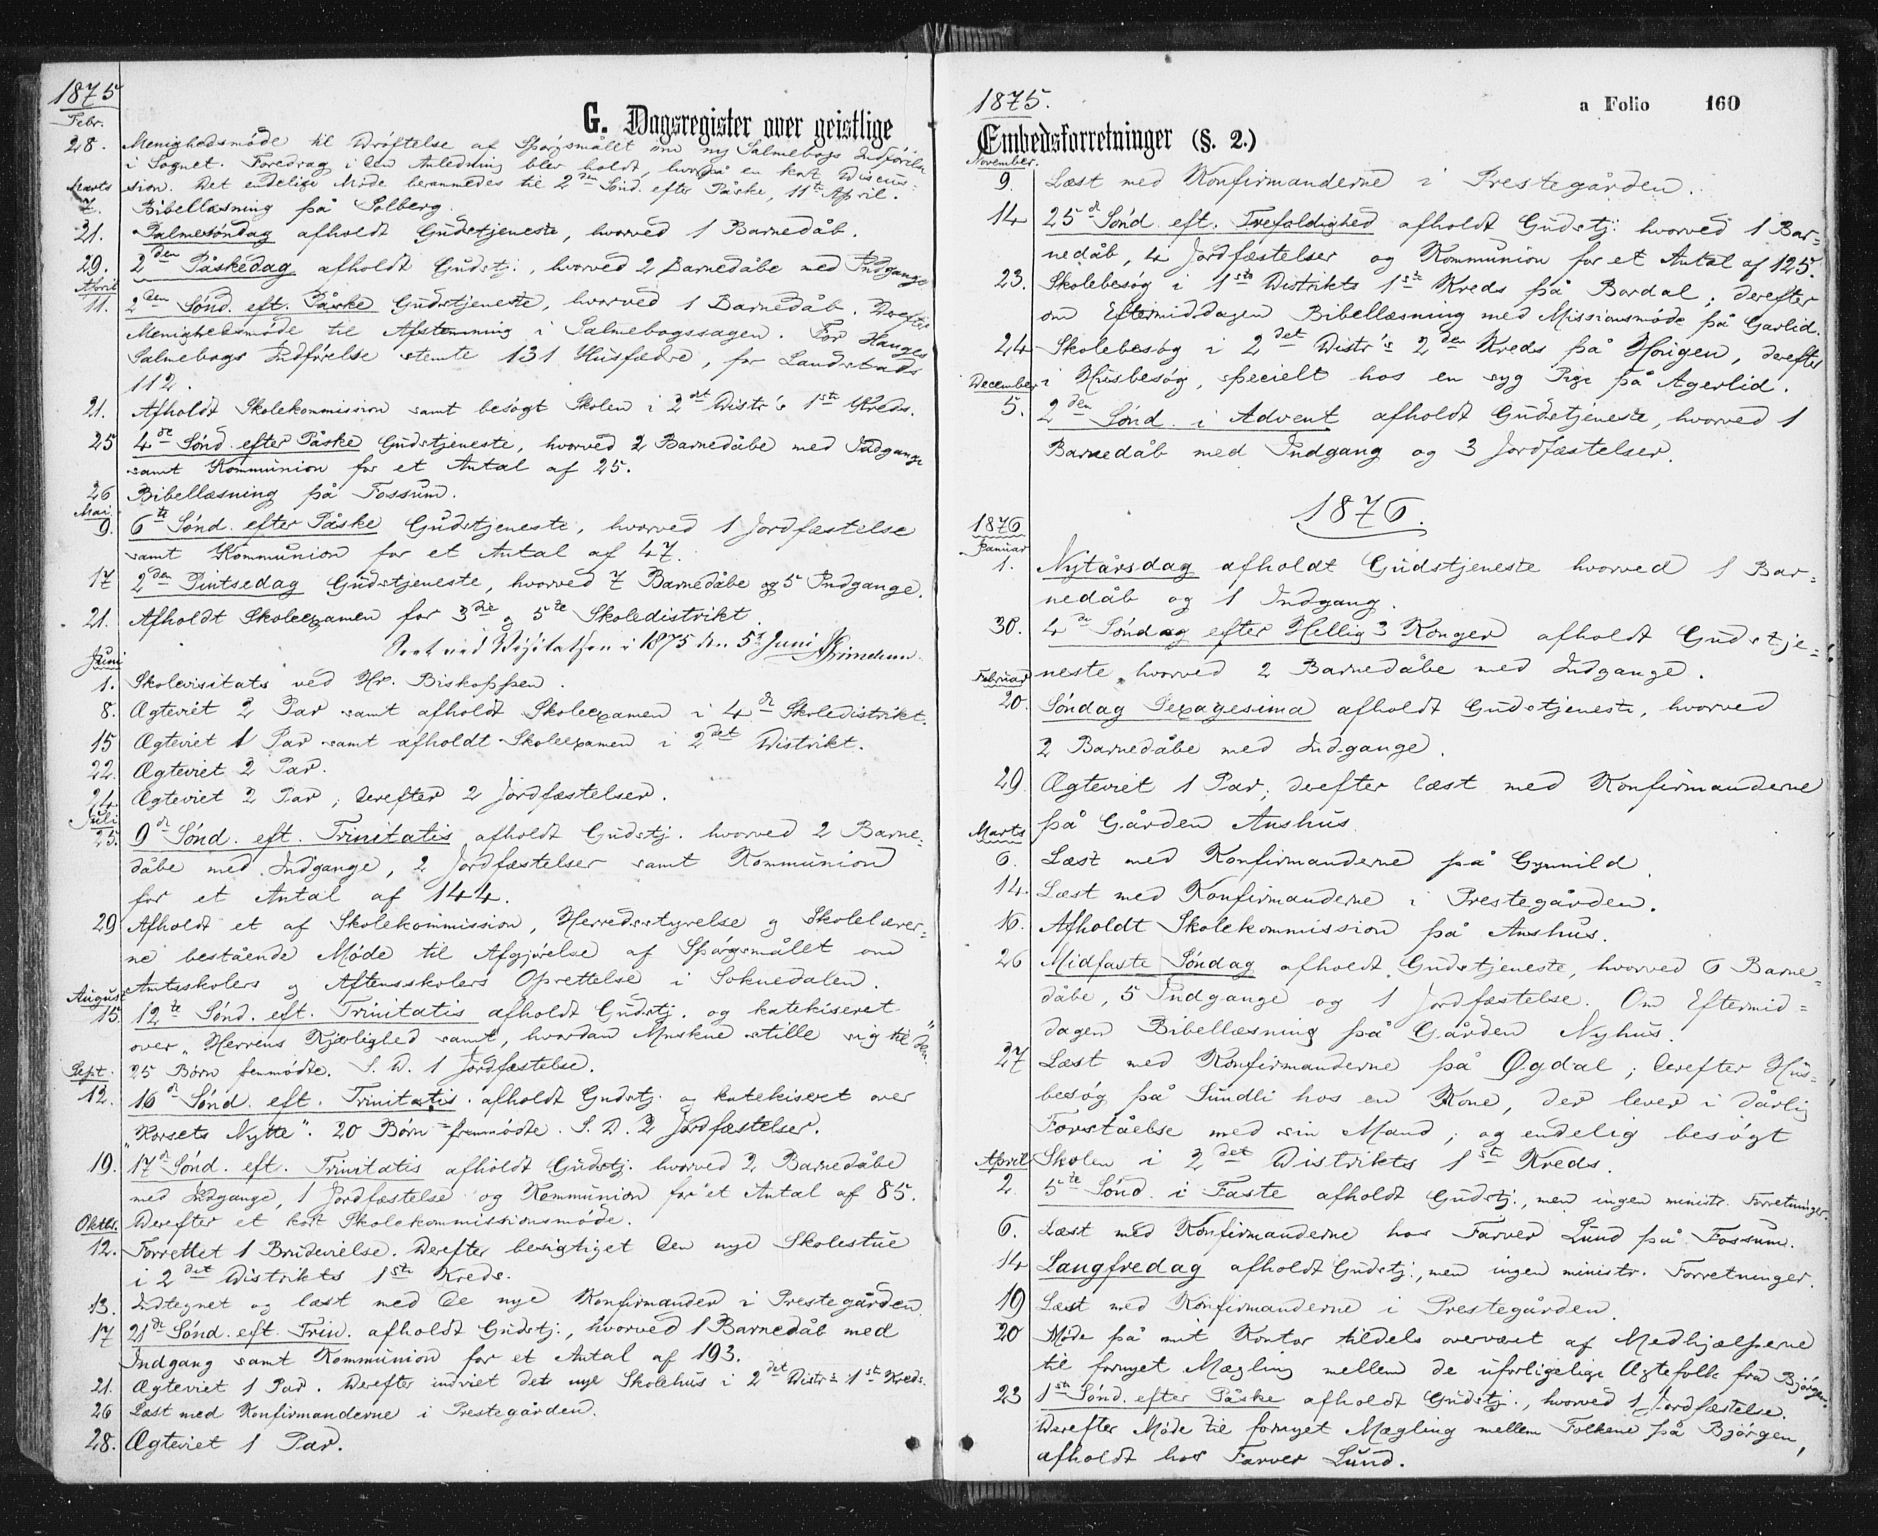 1875
G. Dagsregister over geistlige
Febr.
28. Menighedsmøde til Drøftelse af Spørgsmålet om ny Salmebogs Indførelse
i Sognet. Foredrag i den Anledning blev holdt, hvorpå en kort Discus-
Marts sion. Det endelige Møde berammedes til 2den Sønd. efter Påske, 11te April.
7. Bibellæsning på Solberg.
21. Palmesøndag afholdt Gudstjeneste, hvorved 1 Barnedåb.
29. 2den Påskedag afholdt Gudstj., hvorved 2 Barnedåbe med Indgange
April
11. 2den Sønd. eft. Påske Gudstjeneste, hvorved 1 Barnedåb. Derefter
Menighedsmøde til Afstemning i Salmebogssagen. For Hauges
Salmebogs Indførelse stemte 131 Husfædre, for Landstads
112.
21. Afholdt Skolekommission samt besøgt Skolen i 2det Distr's 1ste Kreds.
25 4de Sønd. efter Påske Gudstjeneste, hvorved 2 Barnedåbe med Indgange
samt Kommunion for et Antal af 25.
26 Bibellæsning på Fossum.
Mai
9. 6te Sønd. efter Påske Gudstjeneste, hvorved 1 Jordfæstelse
samt Kommunion for et Antal af 47.
17 2den Pintsedag Gudstjeneste, hvorved 7 Barnedåbe og 5 Indgange.
21. Afholdt Skoleexamen for 3die og 5te Skoledistrikt.
Seet ved Visitatsen i 1875 den 5t Juni
Juni
1. Skolevisitats ved Hr. Biskoppen.
8. Ægteviet 2 Par samt afholdt Skoleexamen i 4de Skoledistrikt.
15 Ægteviet 1 Par samt afholdt Skoleexamen i 2det Distrikt.
22. Ægteviet 2 Par.
24. Ægteviet 2 Par; derefter 2 Jordfæstelser.
Juli
25. 9de Sønd. eft. Trinitatis afholdt Gudstj. hvorved 2 Barne-
dåbe med Indgange, 2 Jordfæstelser samt Kommunion
for et Antal af 144.
29 Afholdt et af Skolekommission, Herredsstyrelse og Skolelærer-
ne bestående Møde til Afgjørelse af Spørgsmålet om
Amtsskolers og Aftensskolers Oprettelse i Soknedalen.
August
15. 12te Sønd. eft. Trinitatis afholdt Gudstj. og katekiseret
over "Herrens Kjærlighed samt, hvordan Mnskne stille sig til den"
25 Børn fremmødte. S. D. 1 Jordfæstelse.
Sept.
12. 16de Sønd. eft. Trinitatis afholdt Gudstj. og katekiseret over
"Korsets Nytte". 20 Børn fremmødte. S. D. 2 Jordfæstelser.
19. 17de Sønd. eft. Trinitatis afholdt Gudstj. hvorved 2 Barnedåbe
med Indgange, 1 Jordfæstelse og Kommunion for et Antal af 85.
Derefter et kort Skolekommissionsmøde.
Oktbr.
12. Forrettet 1 Brudevielse. Derefter besigtiget den nye Skolestue
i 2det Distrikts 1ste Kreds.
13. Indtegnet og læst med de nye Konfirmander i Prestegården.
17 21de Sønd. eft. Trin. afholdt Gudstj., hvorved 1 Barnedåb med
Indgang samt Kommunion for et Antal af 193.
21. Ægteviet 1 Par. Derefter indviet det nye Skolehus i 2det Distr's 1ste Kreds.
26 Læst med Konfirmanderne i Prestegården.
28. Ægteviet 1 Par.
1875. a Folio 160
Embedsforretninger (§. 2.)
November.
9. Læst med Konfirmanderne i Prestegården.
14 25de Sønd. eft. Trefoldighed afholdt Gudstj. hvorved 1 Bar-
nedåb, 4 Jordfæstelser og Kommunion for et Antal af 125.
23. Skolebesøg i 1ste Distrikts 1ste Kreds på Bordal; derefter
om Eftermiddagen Bibellæsning med Missionsmøde på Garlid.
24 Skolebesøg i 2det Distr's 2den Kreds på Hougen, derefter
December i Husbesøg, specielt hos en syg Pige på Agerlid.
5. 2den Sønd. i Advent afholdt Gudstjeneste, hvorved 1
Barnedåb med Indgang og 3 Jordfæstelser.
1876.
1876
Januar
1. Nytårsdag afholdt Gudstjeneste hvorved 1 Bar-
nedåb og 1 Indgang.
30. 4de Søndag efter Hellig 3 Konger afholdt Gudstje-
neste hvorved 2 Barnedåbe med Indgange.
Februar
20. Søndag Sexagesima afholdt Gudstjeneste, hvorved
2 Barnedåbe med Indgange.
29. Ægteviet 1 Par; derefter læst med Konfirmanderne
på Gården Aushus.
Marts
6. Læst med Konfirmanderne på Gynnild.
14. Læst med Konfirmanderne i Prestegården.
16. Afholdt Skolekommission på Aushus.
26 Midfaste Søndag afholdt Gudstjeneste, hvorved 6 Barne-
dåbe, 5 Indgange og 1 Jordfæstelse. Om Eftermid-
dagen Bibellæsning på Gården Nyhus.
27 Læst med Konfirmanderne på Øgdal; derefter Hus-
besøg på Sundli hos en Kone, der lever i dårlig
Forståelse med sin Mand; og endelig besøgt
Skolen i 2det Distrikts 1ste Kreds.
April
2. 5te Sønd. i Faste afholdt Gudstj., men ingen ministr. Forretninger.
6. Læst med Konfirmanderne hos Farver Lund på Fossum.
14 Langfredag afholdt Gudstj., men ingen ministr. Forretninger.
19 Læst med Konfirmanderne i Prestegården.
20 Møde på mit Kontor tildels overværet af Medhjælperne
til fornyet Mægling mellem de uforligelige Ægtefolk fra Bjørgen.
23 1ste Sønd. efter Påske afholdt Gudstj., hvorved 1 Jordfæstelse.
Derefter Møde til fornyet Mægling mellem Folkene på Bjørgen,
afholdt hos Farver Lund.